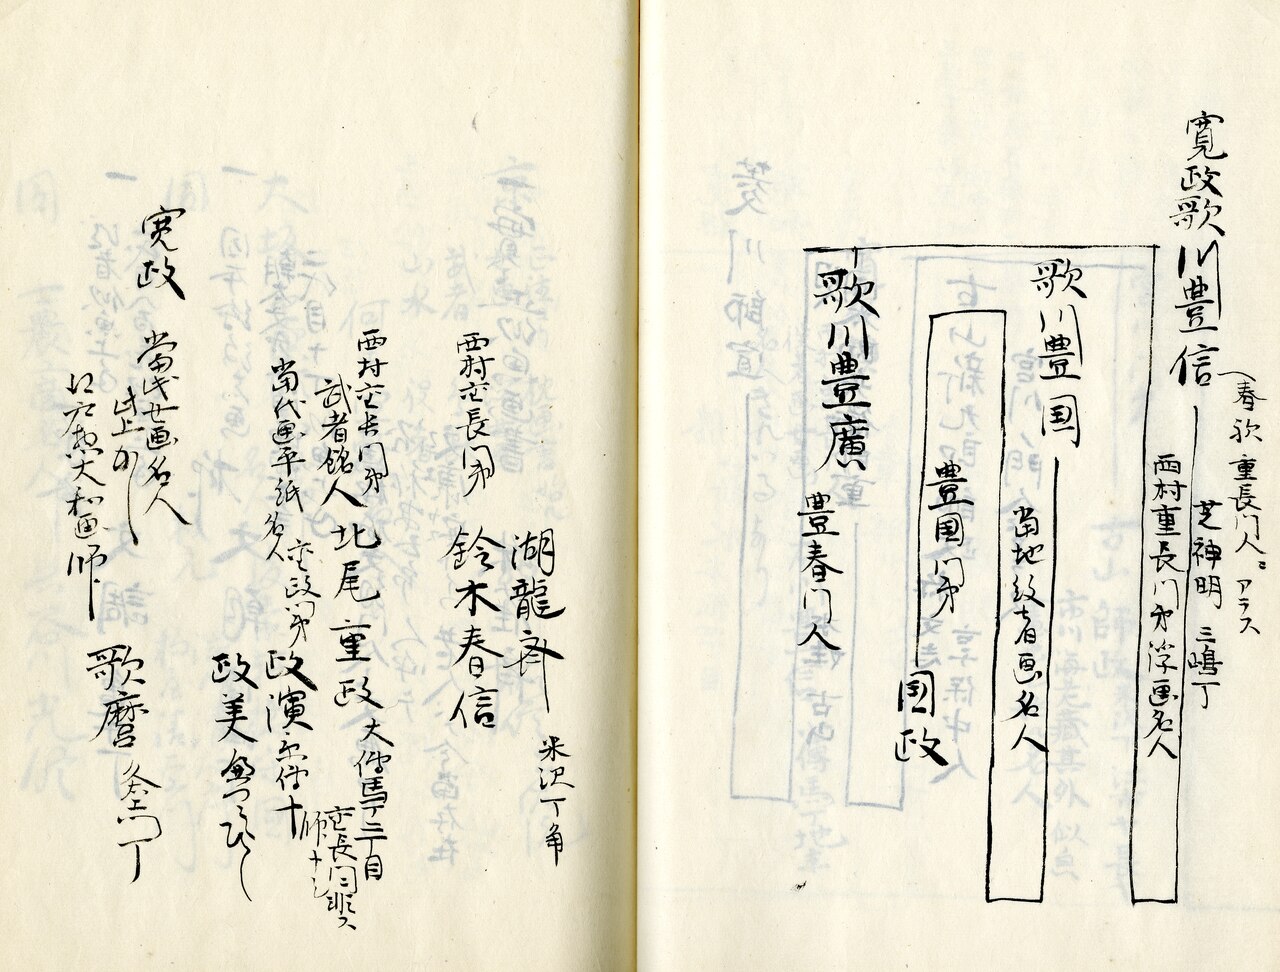 寛政歌川豊信
春歌重長門人ニアラス
芝神明 三嶋丁
西村重長門弟浮画名人
歌川豊国
当地絵者画名人
豊国門弟
国政
歌川豊廣
豊春門人
湖龍斎
米沢丁角
西村重長門弟
鈴木春信
西村重長門弟
武者絵名人 北尾重政 大伝馬丁三丁目
重長門ニ非ス
師ナシ
当代画平紙名人
重政門弟
政演
政美
寛政
當代女画名人
江戸惣大和画師
歌麿